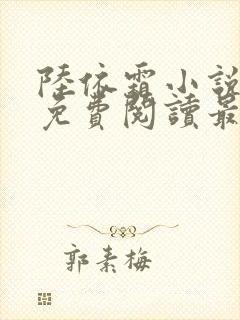 陸依霜小說
免費閱讀最
郭素梅